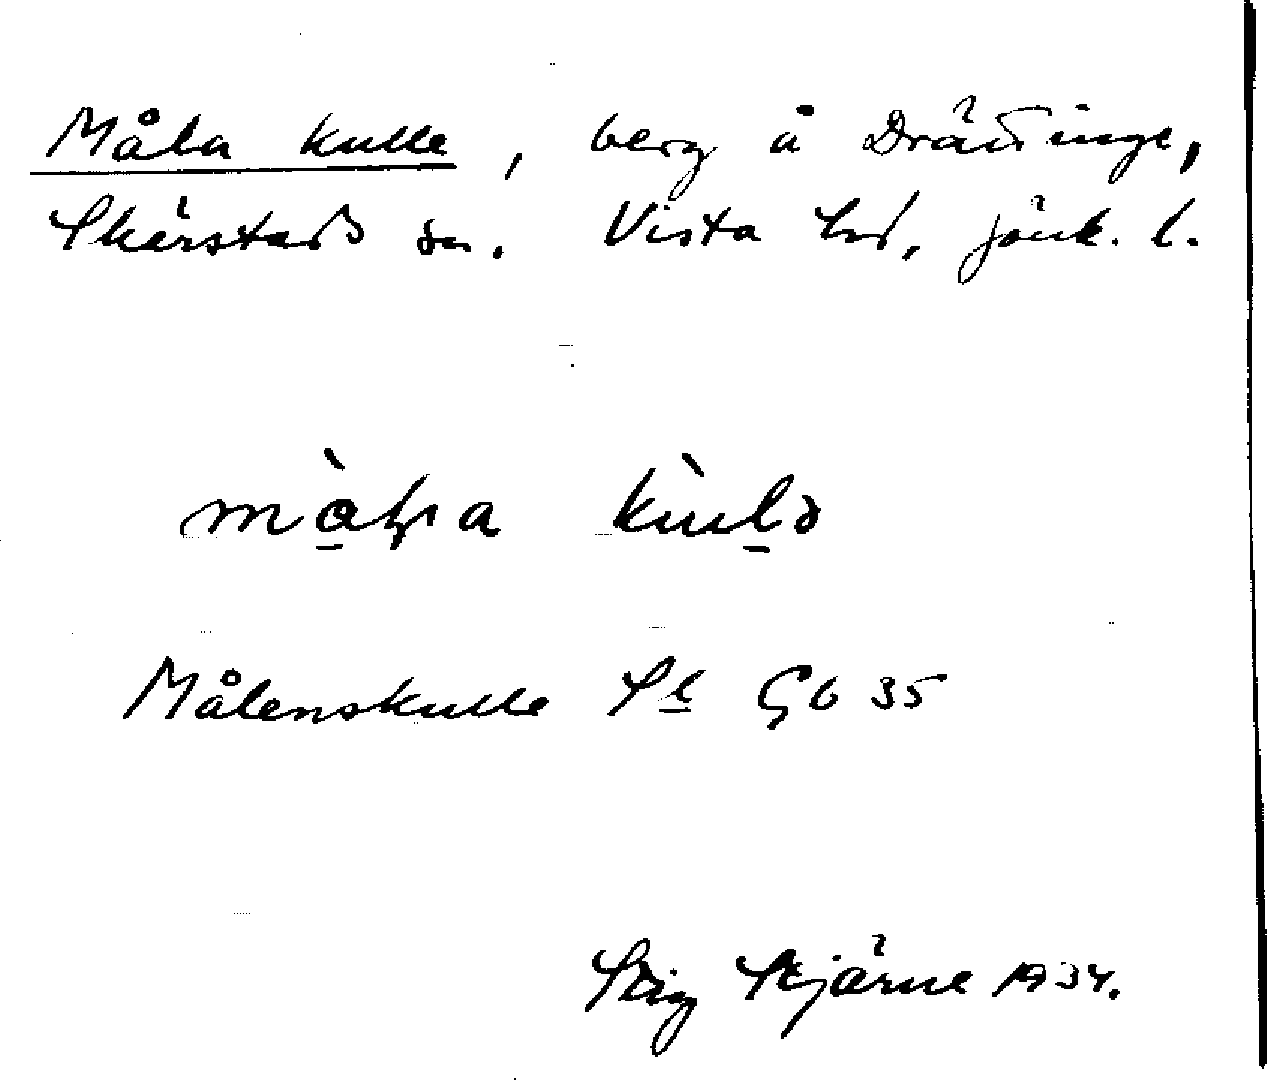 Måla kulle, berg å Drättinge,
Skärstads sn. Vista hd, Jönk. l.
Målenskulle Sk Gb 35
Stig Stjärne 1934.